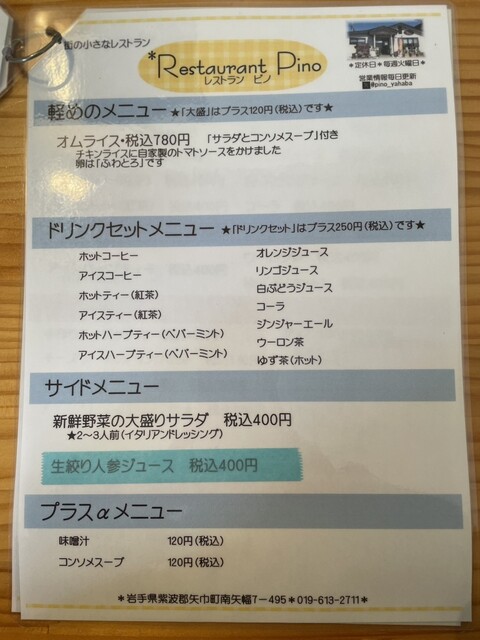 街の小さなレストラン
*Restaurant Pino
レストラン ピノ
*定休日*毎週火曜日*
営業情報毎日更新
@pino_yahaba
軽めのメニュー ★「大盛」はプラス120円(税込)です★
オムライス・税込780円 「サラダとコンソメスープ」付き
チキンライスに自家製のトマトソースをかけました
卵は「ふわとろ」です
ドリンクセットメニュー ★「ドリンクセット」はプラス250円(税込)です★
ホットコーヒー
アイスコーヒー
ホットティー(紅茶)
アイスティー(紅茶)
ホットハーブティー(ペパーミント)
アイスハーブティー(ペパーミント)
オレンジジュース
リンゴジュース
白ぶどうジュース
コーラ
ジンジャーエール
ウーロン茶
ゆず茶(ホット)
サイドメニュー
新鮮野菜の大盛りサラダ 税込400円
★2～3人前(イタリアンドレッシング)
生絞り人参ジュース 税込400円
プラスαメニュー
味噌汁 120円(税込)
コンソメスープ 120円(税込)
*岩手県紫波郡矢巾町南矢幅7-495*019-613-2711*